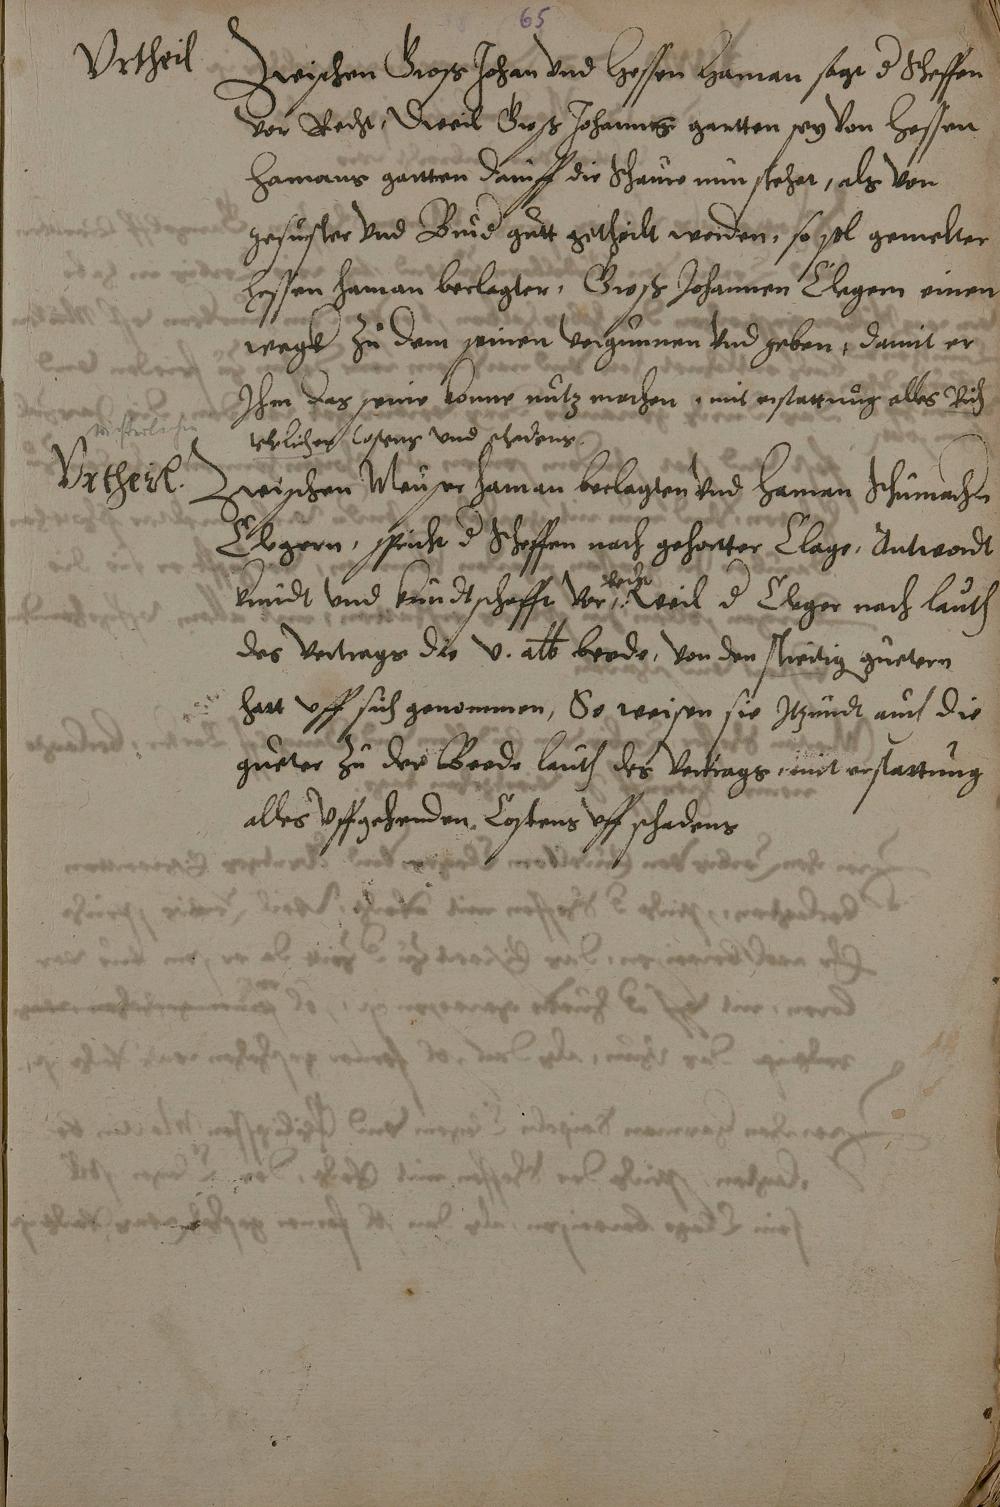 65
Vrtheil
Zwischen Gross Johan vnd Hessen Haman sagt d Scheffen
vor Recht, Dweil Gross Johannes gartten sey von Hessen
Hamans gartten daruff die Scheure nun stehet, als von
geswister vnd Brud gutt getheilt worden, so sol gemelter
Hessen Haman beclagter, Gross Johannen Clegern einen
wegk zu dem seinen vergunnen vnd geben, damit er
Ihm das seine konne nutz machen, mit erstattung alles Rich
terlicher costens vnd schadens.
Vrtheil.
Zwischen Meuser Haman beclagten vnd Haman Schumachr
Clegern, spricht d Scheffen nach gehortter Clage, Antwordt
kundt vnd kundtschafft vor Recht, Weil d Cleger nach lauth
des vertrags die v. alb beede, von den streitig guetern
hatt vff sich genommen, So weisen sie Itzundt auch die
gueter zu der Beede lauth des vertrags, mit erstattung
alles vffgehenden Costens vff schadens